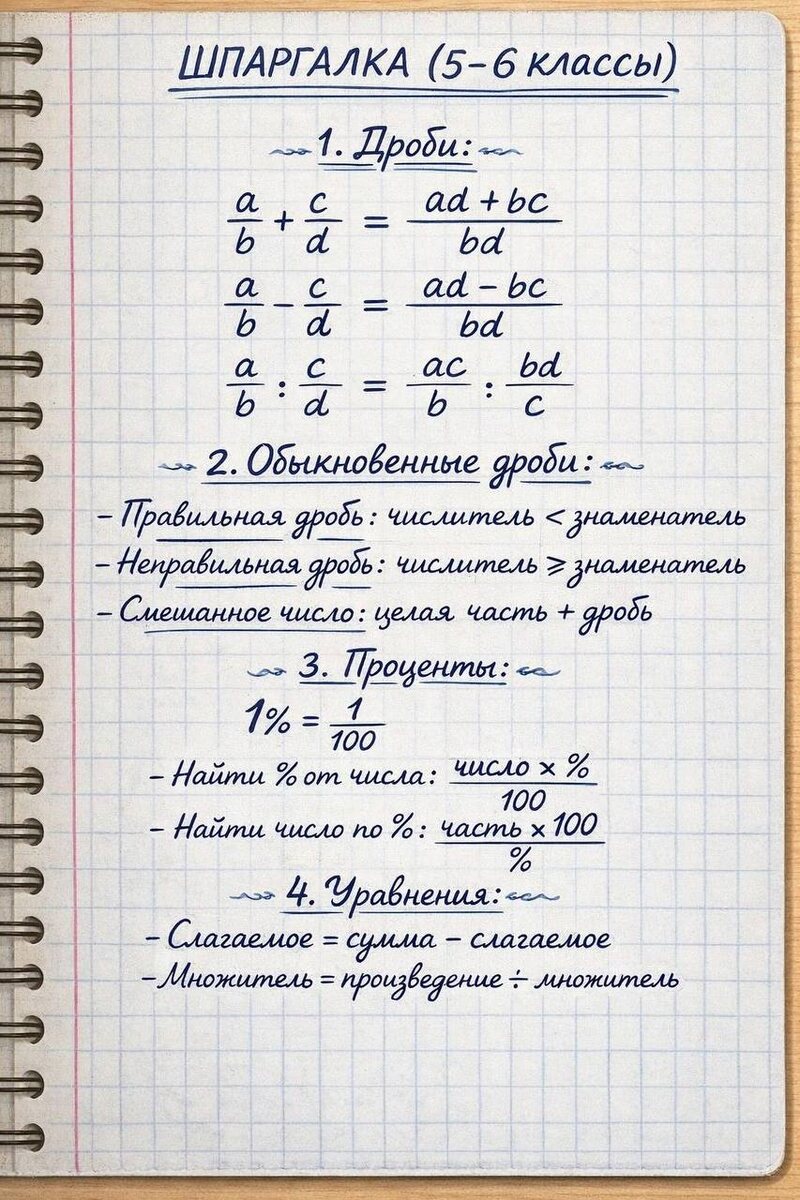 ШПАРГАЛКА (5-6 классы)
1. Дроби:
a/b + c/d = (ad + bc)/bd
a/b - c/d = (ad - bc)/bd
a/b : c/d = ac/b : bd/c
2. Обыкновенные дроби:
- Правильная дробь: числитель < знаменатель
- Неправильная дробь: числитель ⩾ знаменатель
- Смешанное число: целая часть + дробь
3. Проценты:
1% = 1/100
- Найти % от числа: число × %/100
- Найти число по %: часть × 100/%
4. Уравнения:
- Слагаемое = сумма - слагаемое
- Множитель = произведение ÷ множитель